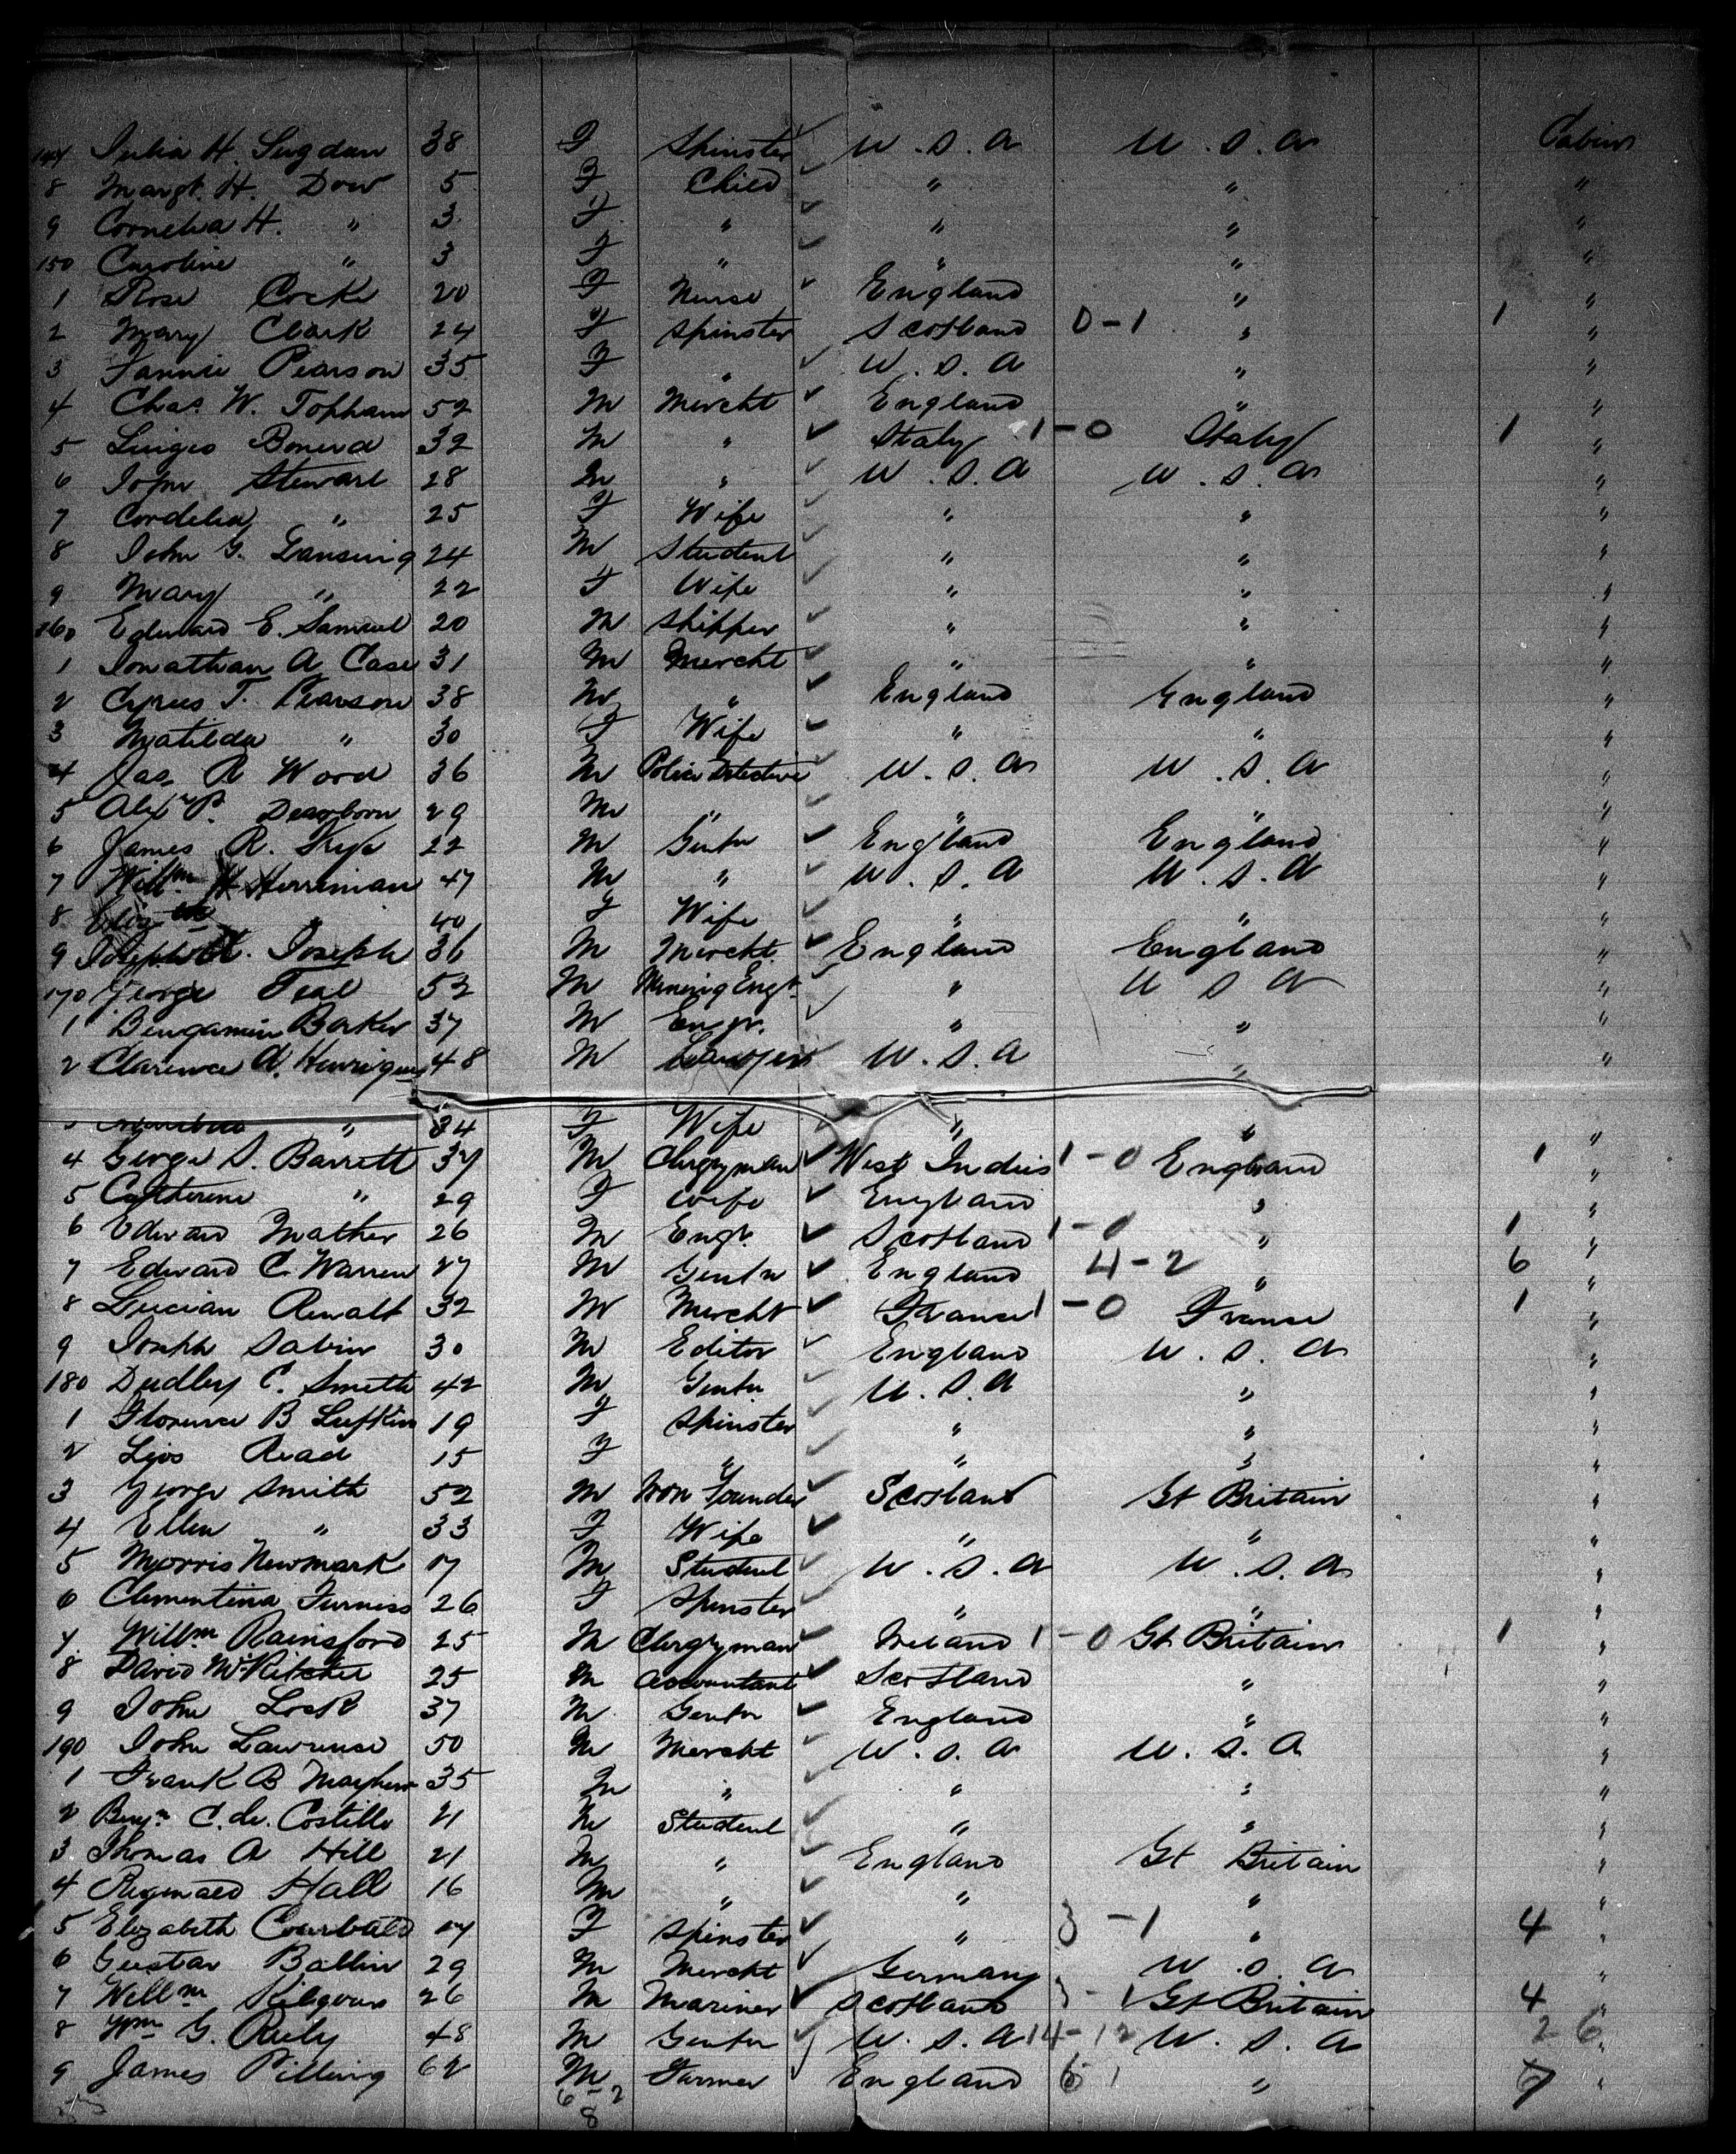 147 Julia H. Sugdan 38 F Spinster U.S.A U.S.A Cabin
8 Margt. H. Dow 5 F Child " " "
9 Cornelia H. " 3 F " " " "
150 Caroline " 3 F " " " "
1 Rose Cocke 20 F Nurse England " "
2 Mary Clark 24 F Spinster Scotland 0-1 " 1 "
3 Fannie Pearson 35 F " U.S.A " "
4 Chas. W. Topham 52 M Mercht England " "
5 Luigio 32 M " Italy 1-0 Italy 1 "
6 John Stewart 28 M " U.S.A U.S.A "
7 Cordelia " 25 F Wife " " "
8 John G. Lansing 24 M Student " " "
9 Mary " 22 F Wife " " "
160 Edward E. Samuel 20 M Shipper " " "
1 Jonathan A Case 31 M Mercht " " "
2 Cyrus T. Pearson 38 M " England England "
3 Matilda " 30 F Wife " " "
4 Jas R Wood 36 M Police Detective U.S.A U.S.A "
5 Alexr P. Dearborn 29 M " " " "
6 James R. 22 M Gentn England England "
7 Willm H Herriman 47 M " U.S.A U.S.A "
8 Elizth 40 F Wife " " "
9 Joseph Joseph 36 M Mercht. England England "
170 George Teal 53 M Mining Engr. " U S A "
1 Bengamin Barker 37 M Engr. " " "
2 Clarence A. Henriques 48 M Lawyer U.S.A " "
" 34 F Wife " " "
4 George S. Barrett 37 M Clergyman West Indies 1-0 England 1 "
5 Catherine " 29 F Wife England " "
6 Edward Mather 26 M Engr. Scotland 1-0 " 1 "
7 Edward C. Warren 27 M Gentn England 4-2 " 6 "
8 Lucian Renalt 32 M Mercht France 1-0 France 1 "
9 Joseph Sabin 30 M Editor England U.S.A "
180 Dudley C. Smith 42 M Gentn U.S.A " "
1 Florence B Lufkin 19 F Spinster " " "
2 Read 15 F " " " "
3 George Smith 52 M Iron Founder Scotland Gt Britain "
4 Ellen " 33 F Wife " " "
5 Morris Newmark 17 M Student U.S.A U.S.A "
6 Clementina Furniss 26 F Spinster " " "
7 Willm Rainsford 25 M Clergyman Ireland 1-0 Gt Britain 1 "
8 David McRitchie 25 M Accountant Scotland " "
9 John Lock 37 M Gentn England " "
190 John Lawrence 50 M Mercht U.S.A U.S.A "
1 Frank B Mayhew 35 M " " " "
2 Benjn C. de Costillo 21 M Student " " "
3 Thomas A Hill 21 M " England Gt Britain "
4 Reginald Hall 16 M " " " "
5 Elizabeth 17 F Spinster " 3-1 " 4 "
6 Gustav Ballin 29 M Mercht Germany U.S.A "
7 Willm Kilgour 26 M Mariner Scotland 3-1 Gt Britain 4 "
8 Wm G. Riely 48 M Gentn U.S.A 14-12 U.S.A 26 "
9 James Pilling 62 M Farmer England 6 1 " 7 "
6-2
8